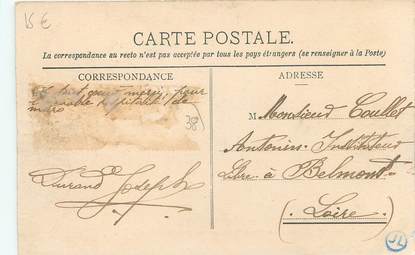 15 €
CARTE POSTALE.
La correspondance au recto n'est pas acceptée par tous les pays étrangers (se renseigner à la Poste)
CORRESPONDANCE
ADRESSE
pour
38
Durand Joseph
M Monsieur Coullet
Antonin Instituteur
Libre à Belmont
(Loire)
JL